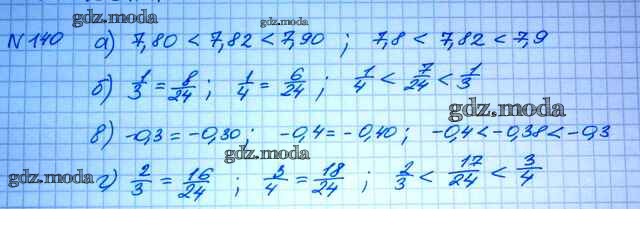 gdz.moda
N 140 а) 7,80 < 7,82 < 7,90 ; 7,8 < 7,82 < 7,9
б) 1/3 = 8/24 ; 1/4 = 6/24 ; 1/4 < 7/24 < 1/3
gdz.moda
в) -0,3 = -0,30 ; -0,4 = -0,40 ; -0,4 < -0,38 < -0,3
gdz.moda
gdz.moda г) 2/3 = 16/24 ; 3/4 = 18/24 ; 2/3 < 17/24 < 3/4
gdz.moda